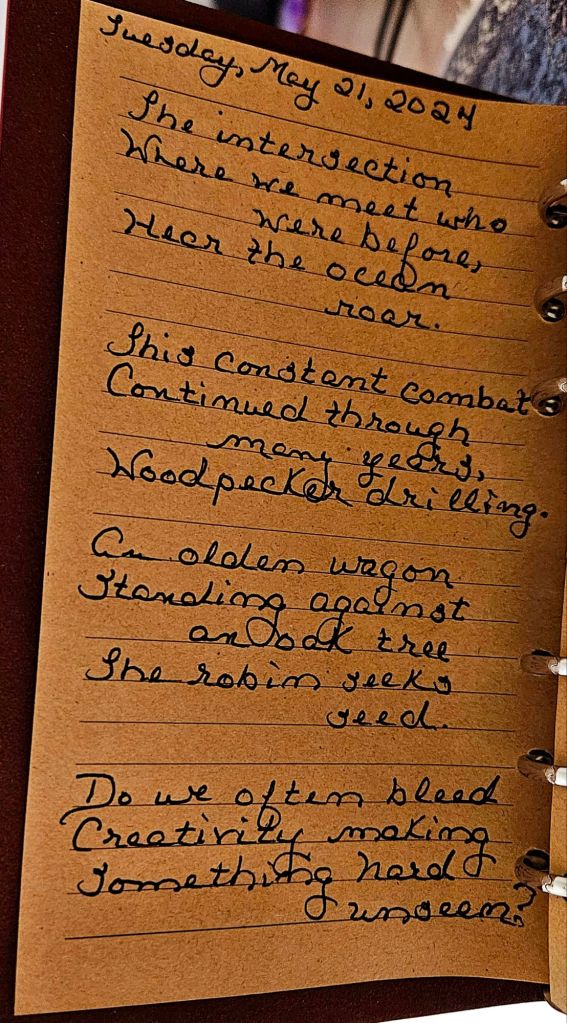 Tuesday, May 21, 2024
The intersection
Where we meet who
were before,
Hear the ocean
roar.
This constant combat
Continued through
many years,
Woodpecker drilling.
An olden wagon
Standing against
an oak tree
The robin seeks
seed.
Do we often bleed
Creativity making
something hard
unseen?